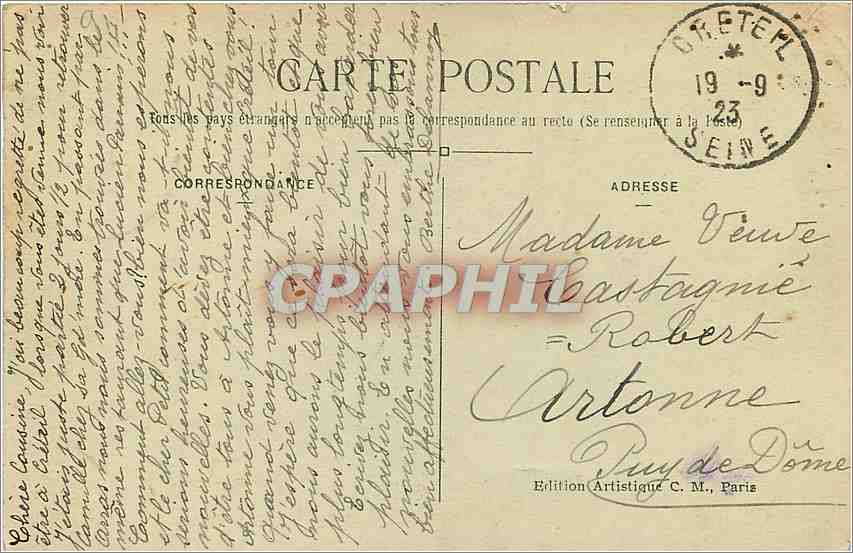 CARTE POSTALE
Tous les pays étrangers n'acceptent pas la correspondance au recto (Se renseigner à la Poste)
CORRESPONDANCE
Chère Cousine J'ai beaucoup regretté de ne pas
être à Créteil lorsque vous êtes venue nous voir
J'étais juste partie 2 jours 1/2 pour retrouver
Camille chez sa mère. En passant par
nous nous sommes trouvés dans le
même restaurant que Lucien Parrain !!!
Comment allez-vous? bien nous espérons
et le cher Petit comment va-t-il nous
serions heureuses d'avoir bientôt de vos
nouvelles. Vous devez être contentes
d'être tous à Artonne et bien chez vous
Artonne vous plait mieux que Créteil!
Quand venez vous y faire un tour
J'espère que ce sera bientôt et que
nous aurons le plaisir de vous avoir
plus longtemps pour bien bavarder
Ecrivez nous bientôt vous ferez bien
plaisir En attendant de vos
nouvelles nous vous embrassons tous
bien affectueusement Berthe
CRETEIL
19 -9
23
SEINE
ADRESSE
Madame Veuve
Castagnié
=Robert
Artonne
Puy de Dôme
Edition Artistique C. M., Paris
CPAPHIL